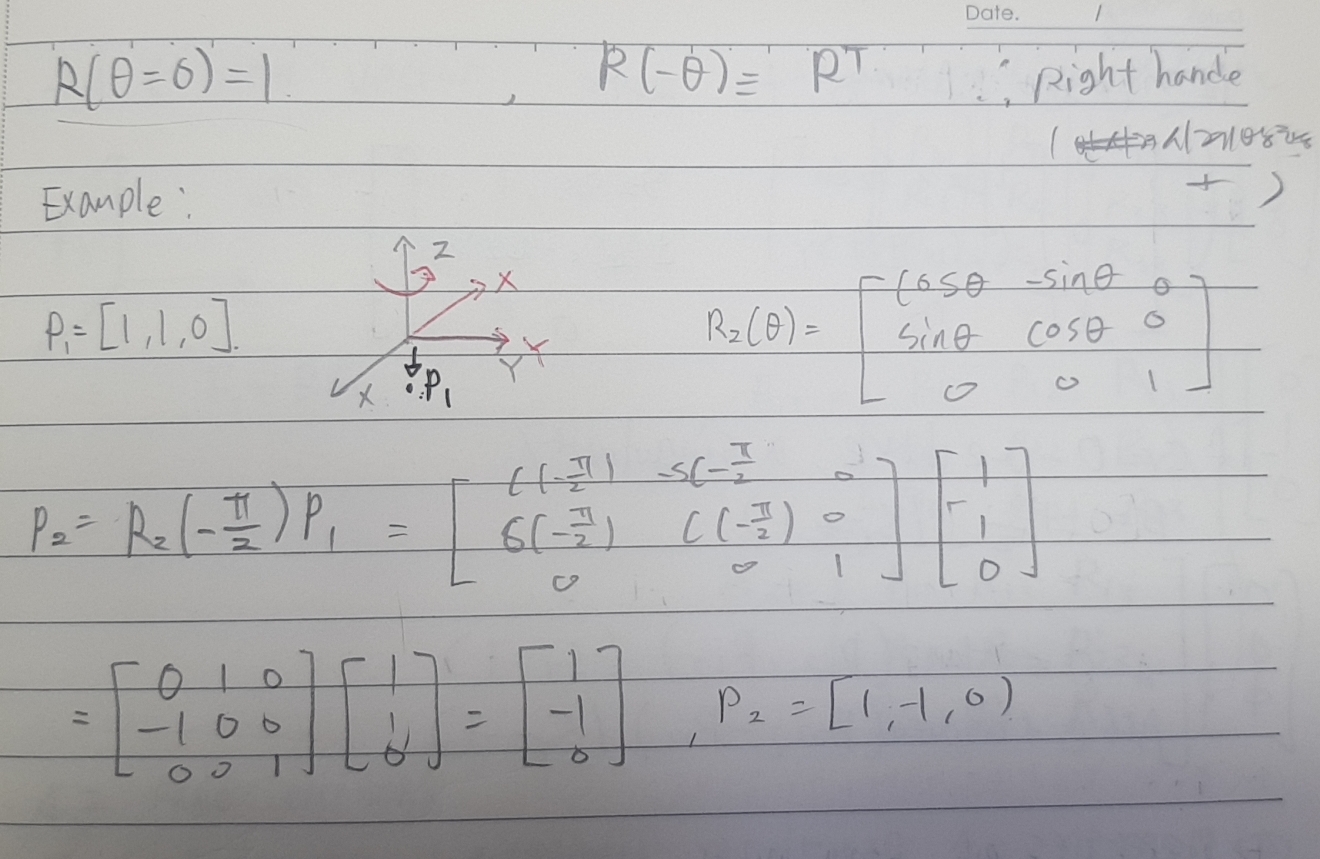 Date. /
R(θ=0)=1. , R(-θ)= Rᵀ ∴, Right hande
( 시계방향
+ )
Example:
Z
X
P₁=[1,1,0].
Y
Y
X
P₁
R_z(θ)= [ cosθ -sinθ 0
sinθ cosθ 0
0 0 1 ]
P₂= R_z(-π/2)P₁ = [ C(-π/2) -S(-π/2 0
S(-π/2) C(-π/2) 0
0 0 1 ] [ 1
1
0 ]
= [ 0 1 0
-1 0 0
0 0 1 ] [ 1
1
0 ] = [ 1
-1
0 ] , P₂ = [1,-1,0)